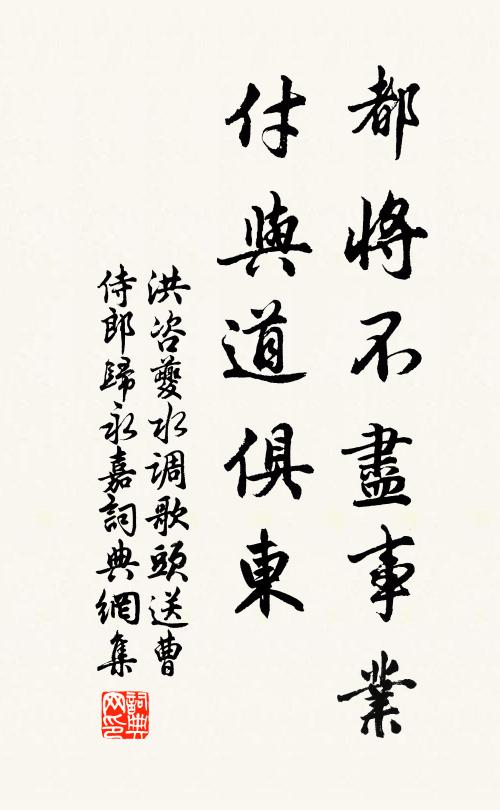 都將不盡事業
付與道俱東
洪咨夔水調歌頭送曹
侍郎歸永嘉詞典網集
詞典网印